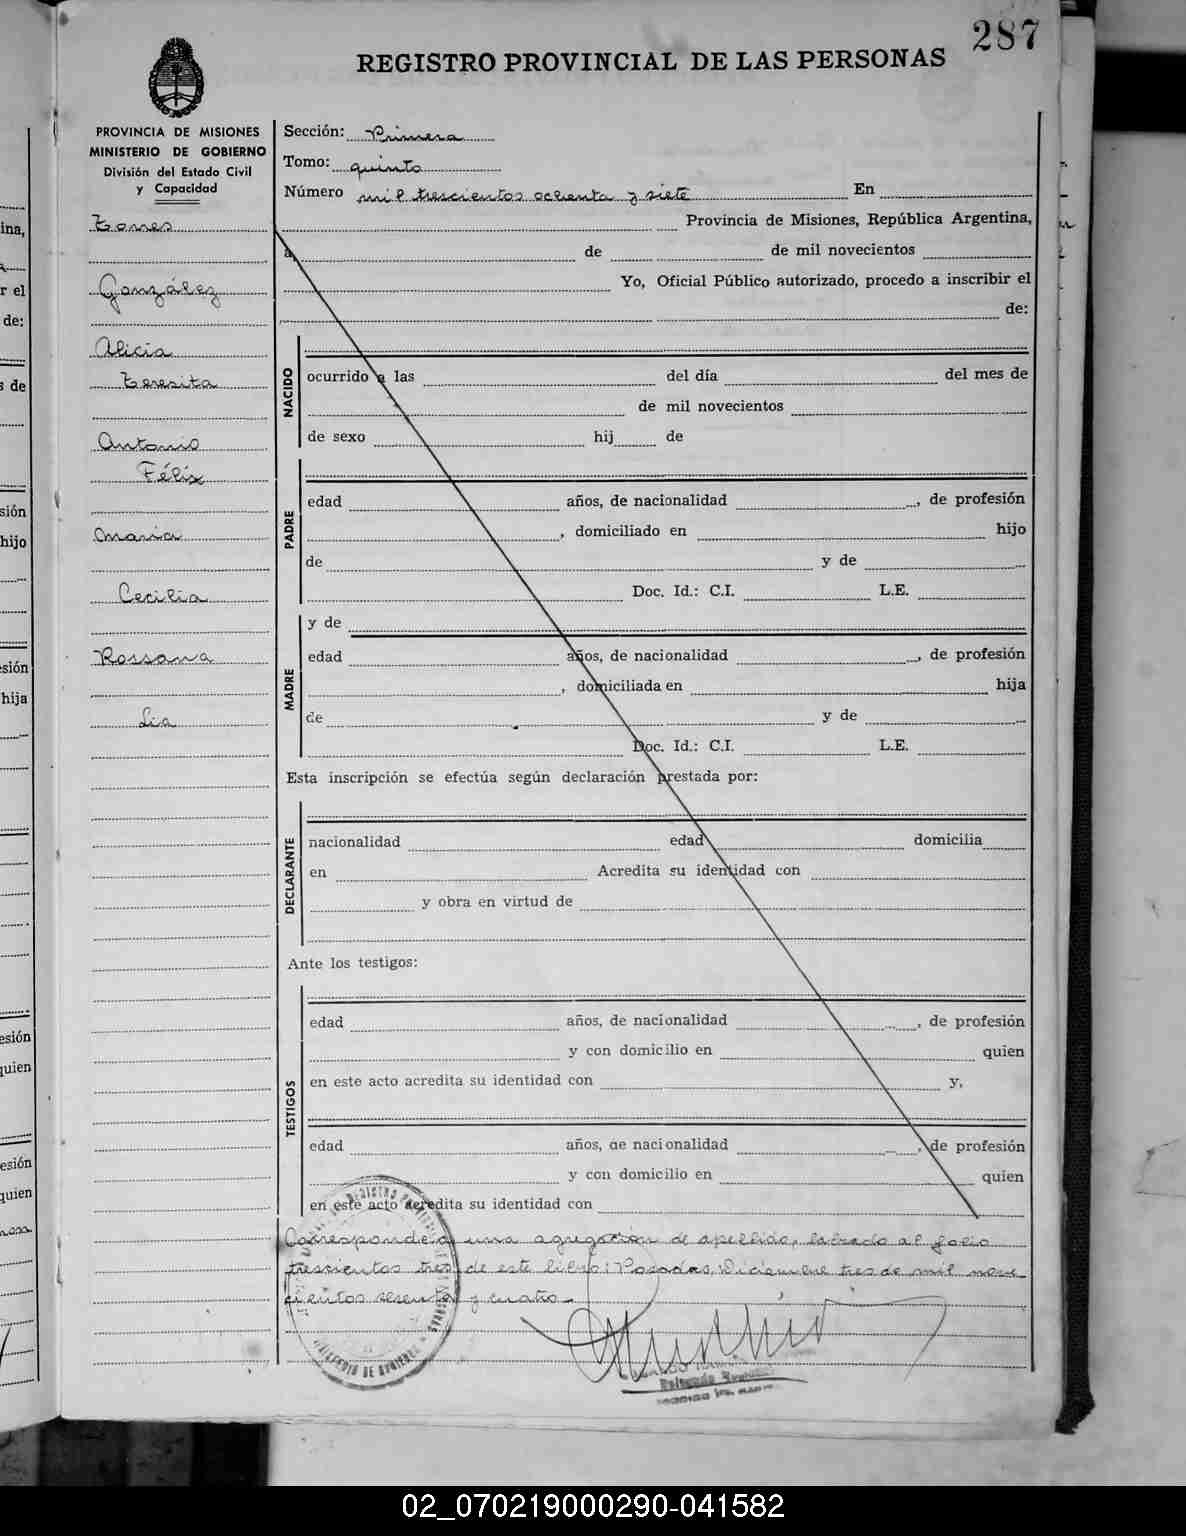 287
REGISTRO PROVINCIAL DE LAS PERSONAS
PROVINCIA DE MISIONES
MINISTERIO DE GOBIERNO
División del Estado Civil
y Capacidad
Torres
González
Alicia
Teresita
Antonio
Félix
Maria
Cecilia
Rossana
Lia
Sección: Primera
Tomo: quinto
Número mil trescientos ochenta y siete En
Provincia de Misiones, República Argentina,
a, de de mil novecientos
Yo, Oficial Público autorizado, procedo a inscribir el
de:
NACIDO
ocurrido a las del día del mes de
de mil novecientos
de sexo hij de
PADRE
edad años, de nacionalidad , de profesión
, domiciliado en hijo
de y de
Doc. Id.: C.I. L.E.
y de
MADRE
edad años, de nacionalidad , de profesión
, domiciliada en hija
de y de
Doc. Id.: C.I. L.E.
Esta inscripción se efectúa según declaración prestada por:
DECLARANTE
nacionalidad edad domicilia
en Acredita su identidad con
y obra en virtud de
Ante los testigos:
TESTIGOS
edad años, de nacionalidad , de profesión
y con domicilio en quien
en este acto acredita su identidad con y,
edad años, de nacionalidad , de profesión
y con domicilio en quien
en este acto acredita su identidad con
Corresponde a una agregación de apellido, labrado al folio
trescientos tres de este libro: Posadas, Diciembre tres de mil nove
cientos sesenta y cuatro.
MINISTERIO DE GOBIERNO
Delegado
ina,
r el
de:
s de
sión
hijo
esión
hija
esión
quien
esión
quien
02_070219000290-041582